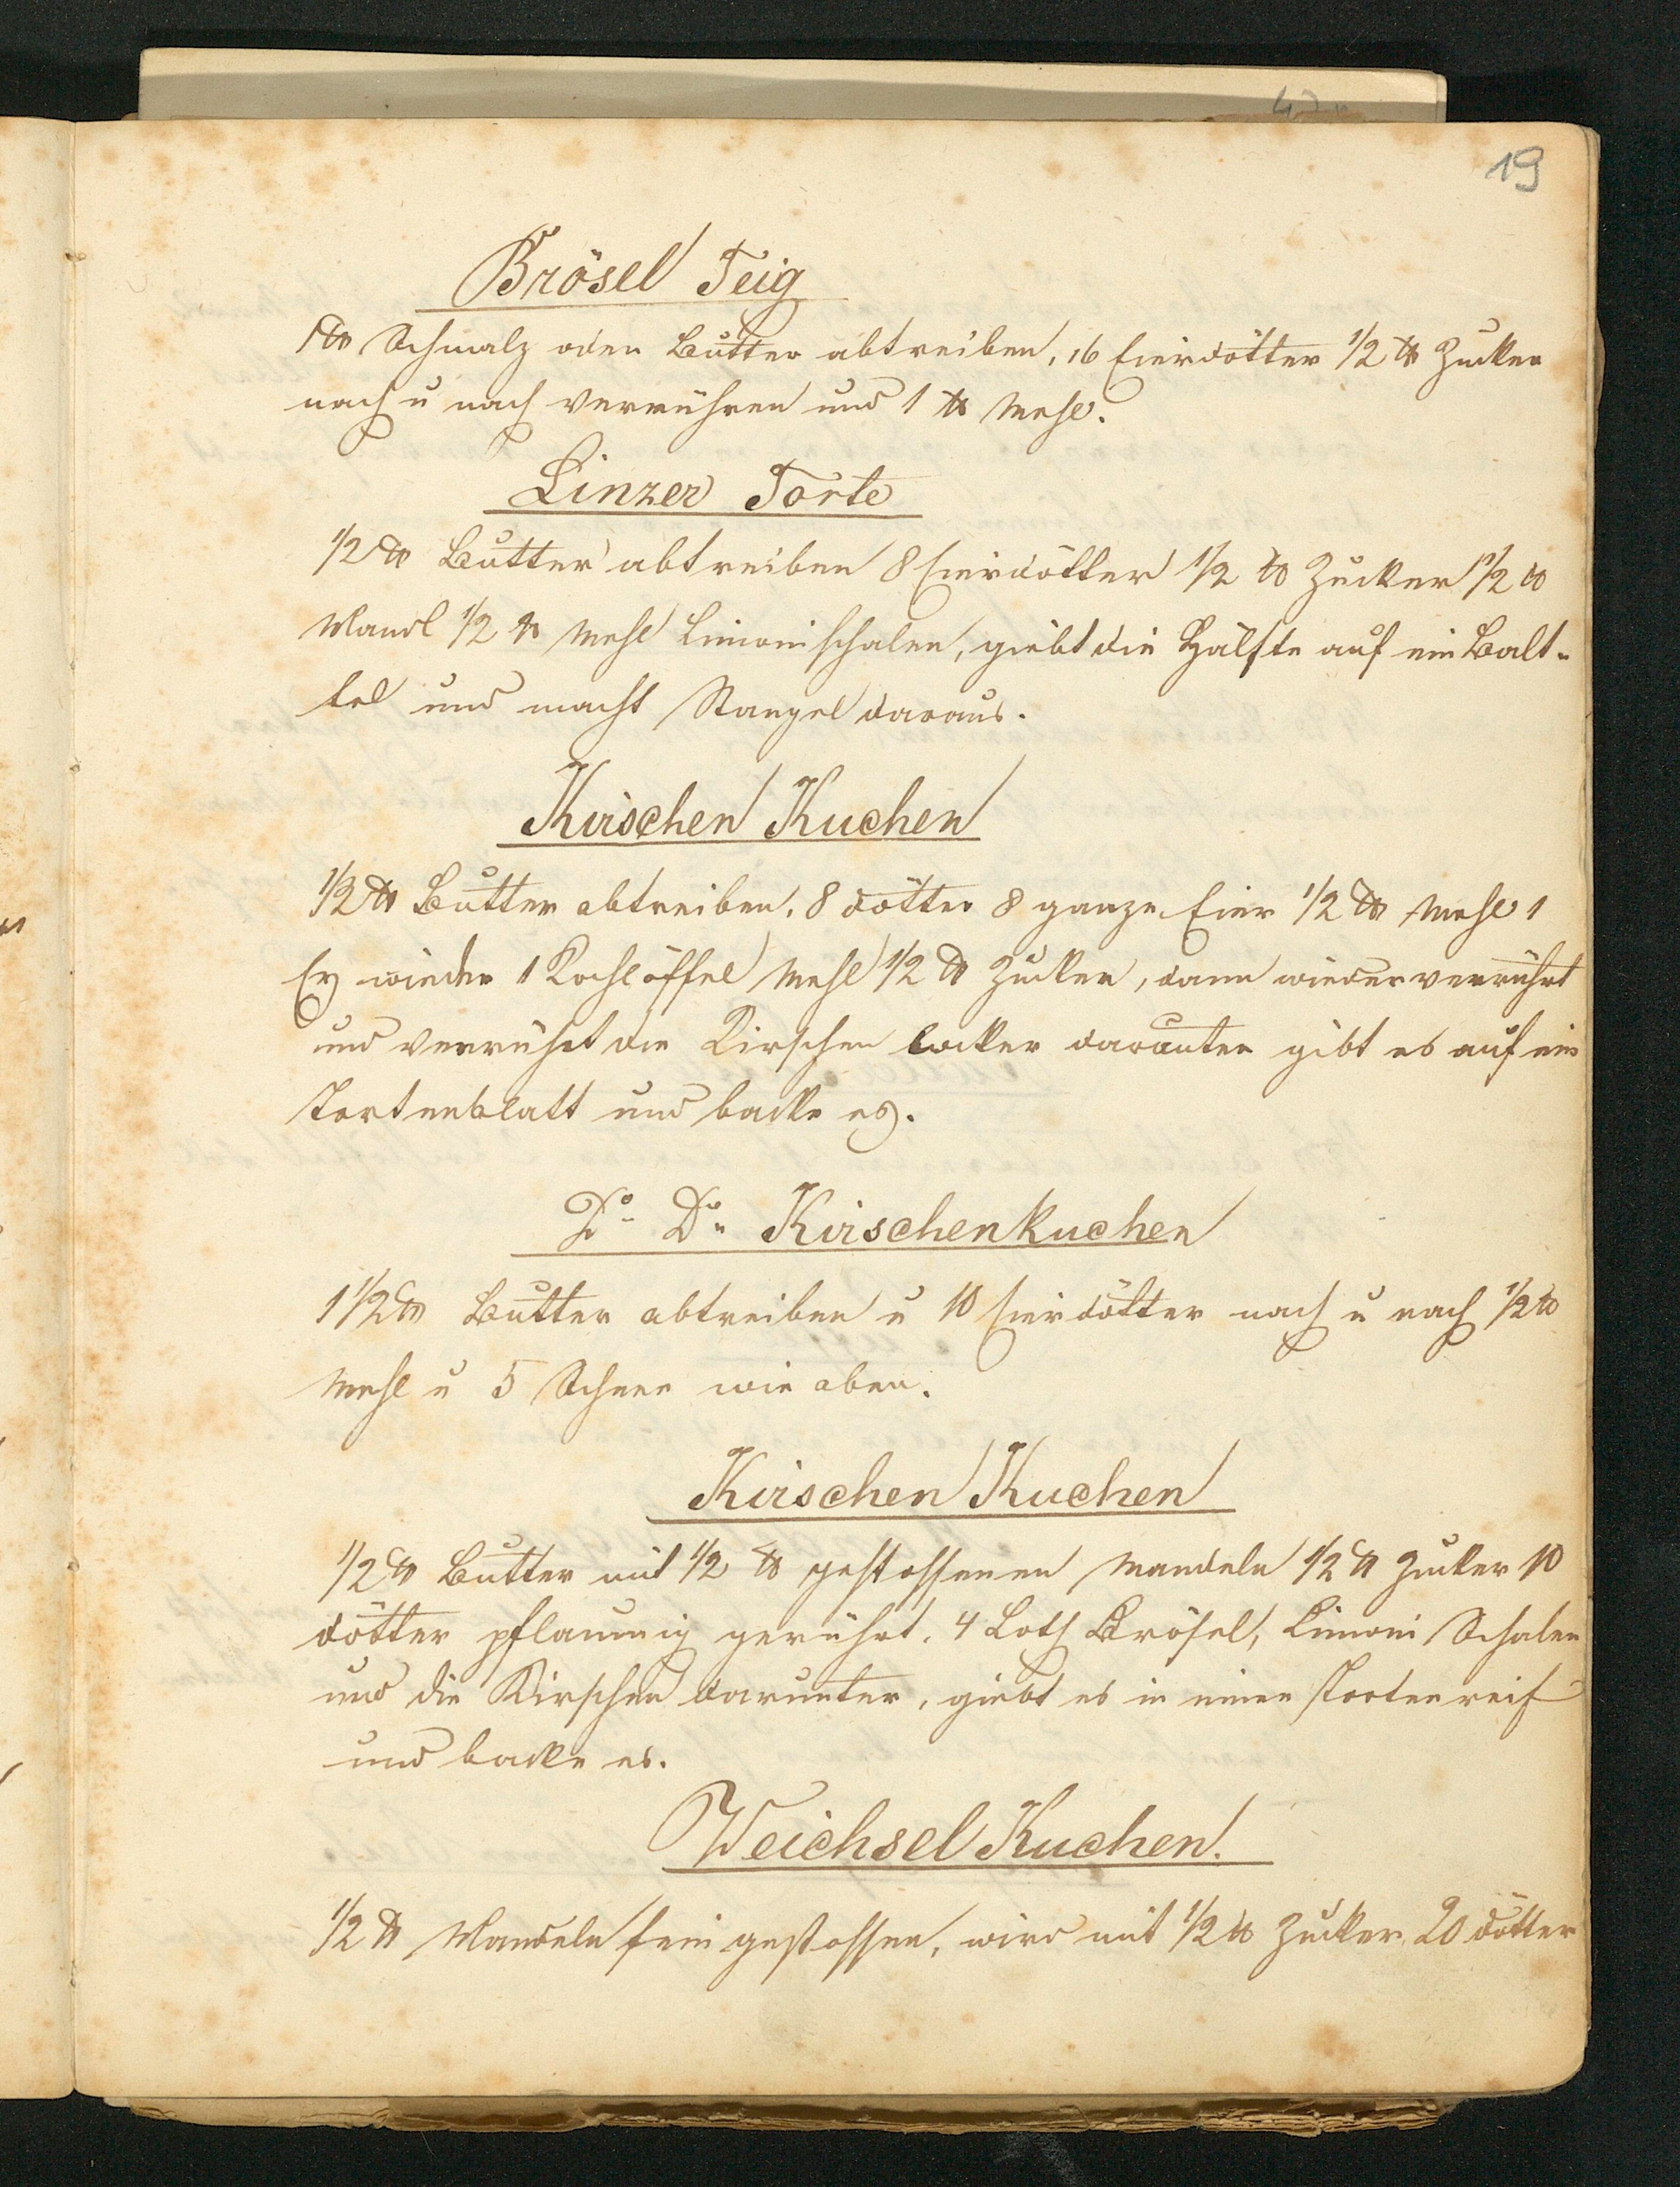 19
Brösel Teig
1 ℔ Schmalz oder Butter abtreiben, 16 Eierdötter 1/2 ℔ Zucker
nach u nach verrühren und 1 ℔ Mehl.
Linzer Torte
1/2 ℔ Butter abtreiben 8 Eierdötter 1/2 ℔ Zucker 1/2 ℔
Mandl 1/2 ℔ Mehl Limonischalen, giebt die Hälfte auf ein Balt-
tel und macht Stangel daraus.
Kirschen Kuchen
1/2 ℔ Butter abtreiben, 8 dötter 8 ganze Eier 1/2 ℔ Mehl 1
Ey wieder 1 Kochlöffel Mehl 1/2 ℔ Zucker, dann wieder verrührt
und verrührt die Kirschen locker darunter gibt es auf ein
Tortenblatt und backe es.
Do Do Kirschenkuchen
1 1/2 ℔ Butter abtreiben u 10 Eierdötter nach u nach 1/2 ℔
Mehl u 5 Schnee wie oben.
Kirschen Kuchen
1/2 ℔ Butter mit 1/2 ℔ gestossenen Mandeln 1/2 ℔ Zucker 10
dötter pflaumig gerührt, 4 Loth Brösel, Limoni Schalen
und die Kirschen darunter, giebt es in einen Tortenreif
und backe es.
Weichsel Kuchen.
1/2 ℔ Mandeln fein gestossen, wird mit 1/2 ℔ Zucker, 20 dötter